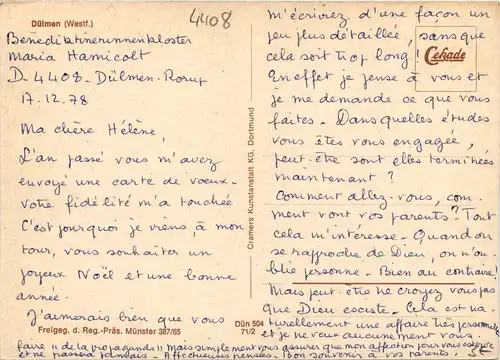 Dülmen (Westf.)
4408
Benediktinerinnenkloster
Maria Hamicolt
D_4408_ Dülmen_Rorup
17.12.78
Ma chère Hélène,
L'an passé vous m'avez
envoyé une carte de vœux_
votre fidélité m'a touchée
C'est pourquoi je viens, à mon
tour, vous souhaiter un
joyeux Noël et une bonne
année.
J'aimerais bien que vous
Freigeg. d. Reg.-Präs. Münster 387/65
Cramers Kunstanstalt KG, Dortmund
Dün 504
71/2
Cekade
m'écrivez d'une façon un
peu plus détaillée, sans que
cela soit trop long!
En effet je pense à vous et
je me demande ce que vous
faites_ Dans quelles études
vous êtes vous engagée,
peut-être sont elles terminées
maintenant?
Comment allez-vous, com_
ment vont vos parents? Tout
cela m'intéresse_ Quand on
se rapproche de Dieu, on n'ou_
blie personne_ Bien au contraire!
Mais peut-être ne croyez vous pas
que Dieu existe_ Cela est na_
turellement une affaire très personnelle
et je ne veux aucunement vous
faire "de la propagande" Mais simplement vous assurer que mon affection pour vous
et passera jamais_ Affectueuses pensées_ Bon souvenir à vos parents_